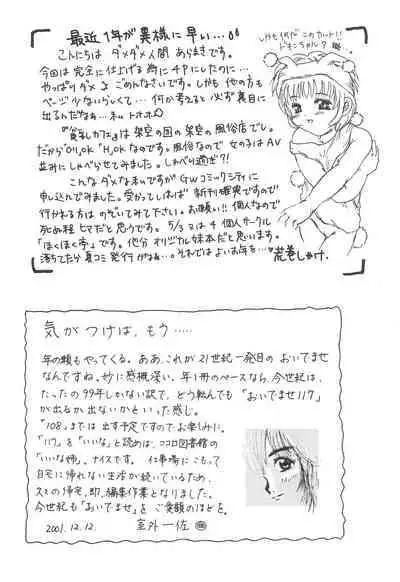 最近1年が異様に早い…
こんにちは ダメダメ人間 あらまきです。
今回は完全に仕上げる為に4Pにしたのに…
やっぱりダメ ごめんなさいです。しかも 他の方も
ページ少ないらしくて… 何か考えると必ず裏目に
出るんだなぁ…
カフェは架空の国の架空の風俗店でし。
なのです。風俗なので 女の子はAV
並みにしゃべらせてみました。しゃべり過ぎ?!
こんなダメな私ですが GWコミックシティに
申し込んでみました。受かってしまば 新刊確実ですので
行かれる方は のぞいてみて下さい。お願い!! 個人なので
死ぬ程 ヒマだと思うです。5/3 は 個人サークル
「ほくほく亭」です。他分 オリジナル だと思います。
落ちてたら 夏コミ 発行かなぁ…。それではよいお年を…
荒巻しゃけ.
気がつけば、もう……
年の瀬もやってくる。ああ、これが21世紀一発目の おいでませ
なんですね。妙に感慨深い。年1冊のペースなら、今世紀は、
たったの99年しかない訳で、どう転んでも「おいでませ117」
が出るか出ないかといった感じ。
「108」までは 出す予定ですのでお楽しみに。
「117」を「いいな」と読めば、ココロ図書館の
「いいな姉」。ナイスです。 仕事場にこもって
自宅に帰れない生活が続いているため、
久々の帰宅、即、編集作業となりました。
今世紀も「おいでませ」を ご愛顧のほどを。
2001.12.12. 室外一佐